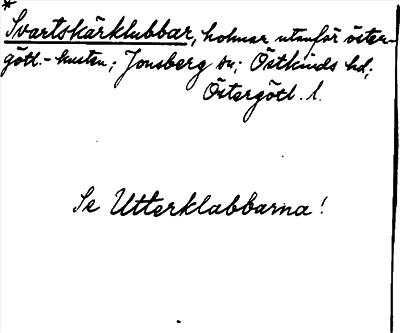 *
Svartskärklubbar, holmar utanför öster-
götl.-kusten; Jonsberg sn; Östkinds hd;
Östergötl. l.
Se Utterklabbarna!